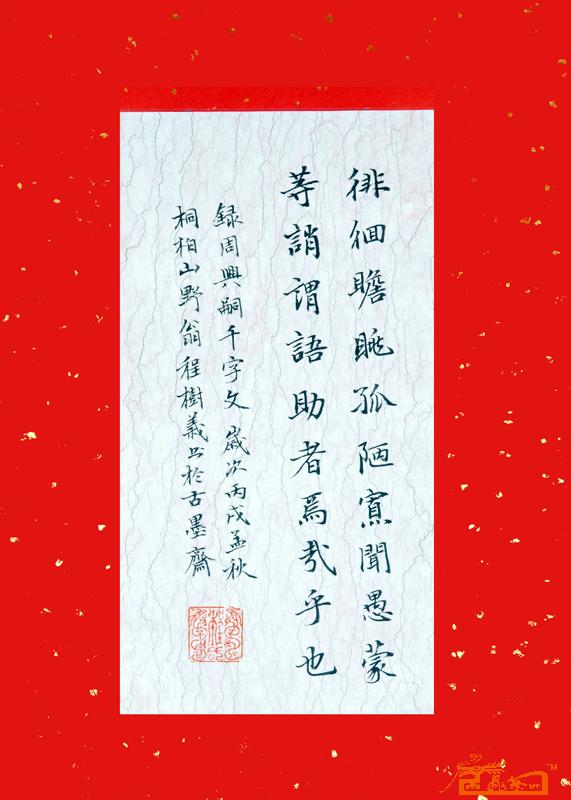 徘徊瞻眺孤陋寡聞愚蒙
等誚謂語助者焉哉乎也
録周興嗣千字文歲次丙戌孟秋
桐柏山野翁程樹義书於古墨齋